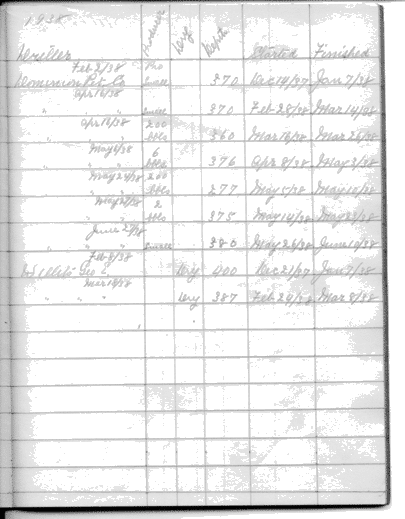 1938
Driller Producer Dry Depth Started Finished
Feb 2/38 Pro
Dominion Pet. Co Small 370 Dec 14/37 Jan 7/38
Apr 16/38
" " Small 370 Feb 28/38 Mar 14/38
Apr 16/38 200
" " bbls 360 Mar 16/38 Mar 26/38
May 6/38 6
" " bbls 376 Apr 8/38 May 3/38
May 24/38 200
" " bbls 277 May 5/38 May 10/38
May 27/38 2
" " bbls 375 May 14/38 May 23/38
June 27/38
" " Small 380 May 26/38 June 10/38
Feb 8/38
Geo Dry 400 Dec 21/37 Jan 7/38
Mar 18/38
" " " Dry 387 Feb 24/38 Mar 8/38